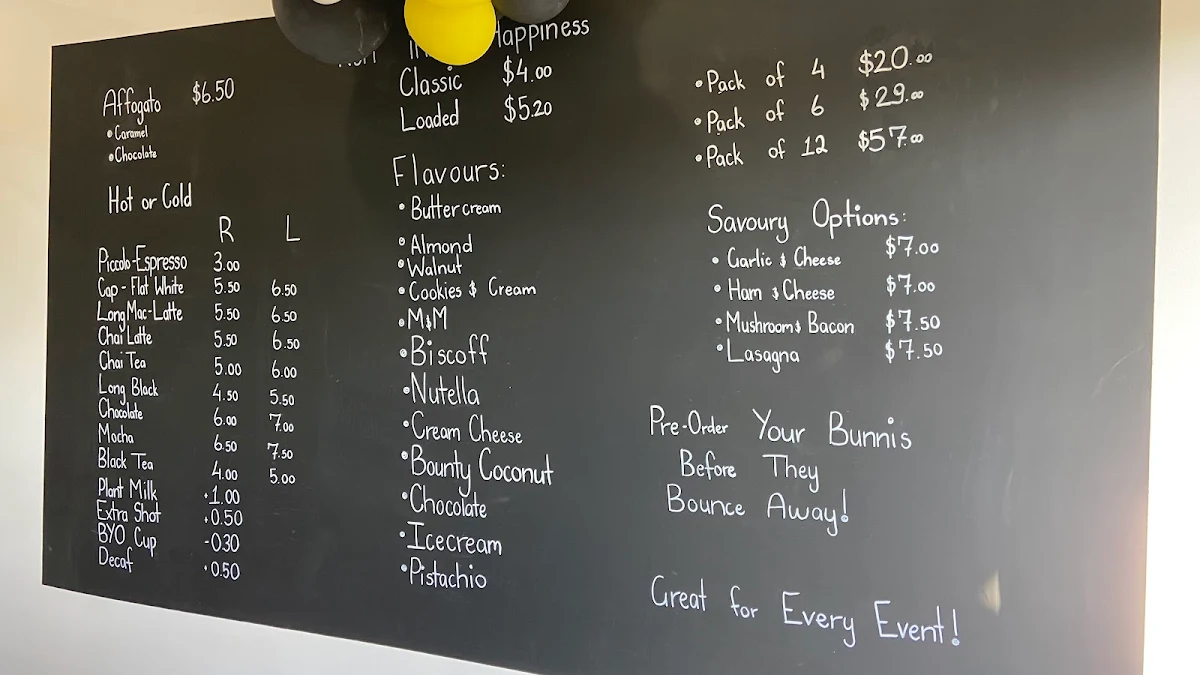 Affogato $6.50
• Caramel
• Chocolate
Hot or Cold
R L
Piccolo-Espresso 3.00
Cap - Flat White 5.50 6.50
Long Mac-Latte 5.50 6.50
Chai Latte 5.50 6.50
Chai Tea 5.00 6.00
Long Black 4.50 5.50
Chocolate 6.00 7.00
Mocha 6.50 7.50
Black Tea 4.00 5.00
Plant Milk +1.00
Extra Shot +0.50
BYO Cup -0.30
Decaf +0.50
Happiness
Classic $4.00
Loaded $5.20
Flavours:
• Buttercream
• Almond
• Walnut
• Cookies & Cream
• M&M
• Biscoff
• Nutella
• Cream Cheese
• Bounty Coconut
• Chocolate
• Icecream
• Pistachio
• Pack of 4 $20.00
• Pack of 6 $29.00
• Pack of 12 $57.00
Savoury Options:
• Garlic & Cheese $7.00
• Ham & Cheese $7.00
• Mushroom & Bacon $7.50
• Lasagna $7.50
Pre-Order Your Bunnis
Before They
Bounce Away!
Great for Every Event!